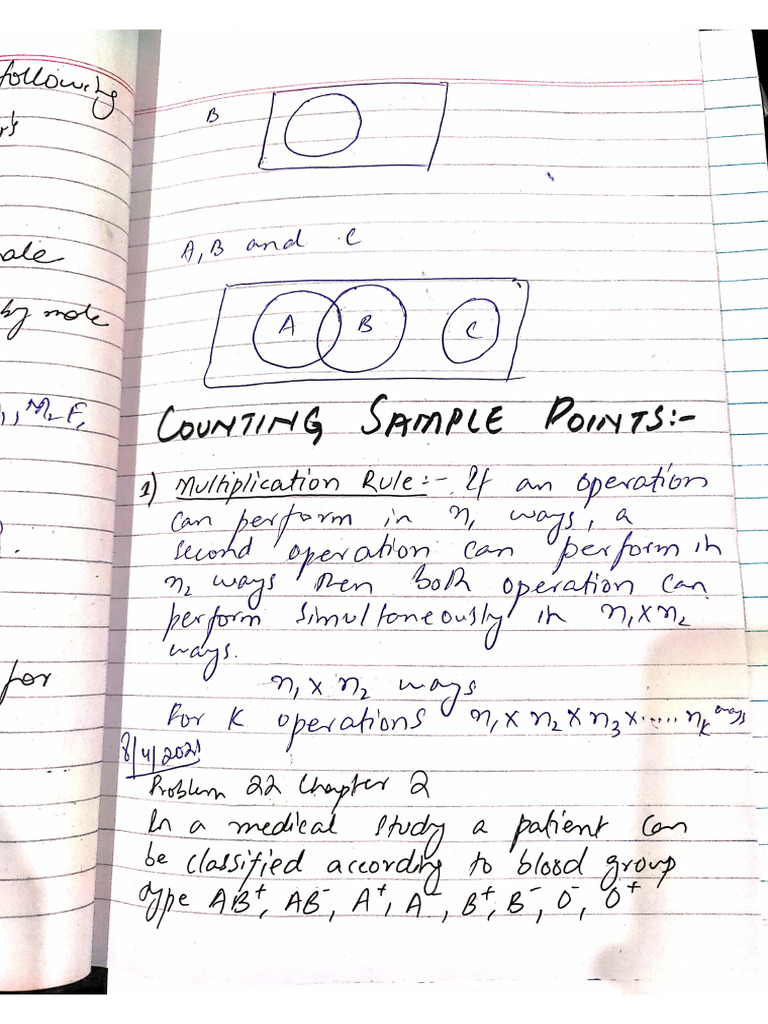 following
ale
by mole
for
B
A, B and C
A
B
C
COUNTING SAMPLE POINTS:-
1) Multiplication Rule:- If an operation
can perform in n₁ ways, a
second operation can perform in
n₂ ways then both operation can
perform simultaneously in n₁×n₂
ways.
n₁ × n₂ ways
For K operations n₁×n₂×n₃×.....nₖ ways
8/4/2021
Problem 22 Chapter 2
In a medical study a patient can
be classified according to blood group
type AB⁺, AB⁻, A⁺, A⁻, B⁺, B⁻, O⁻, O⁺